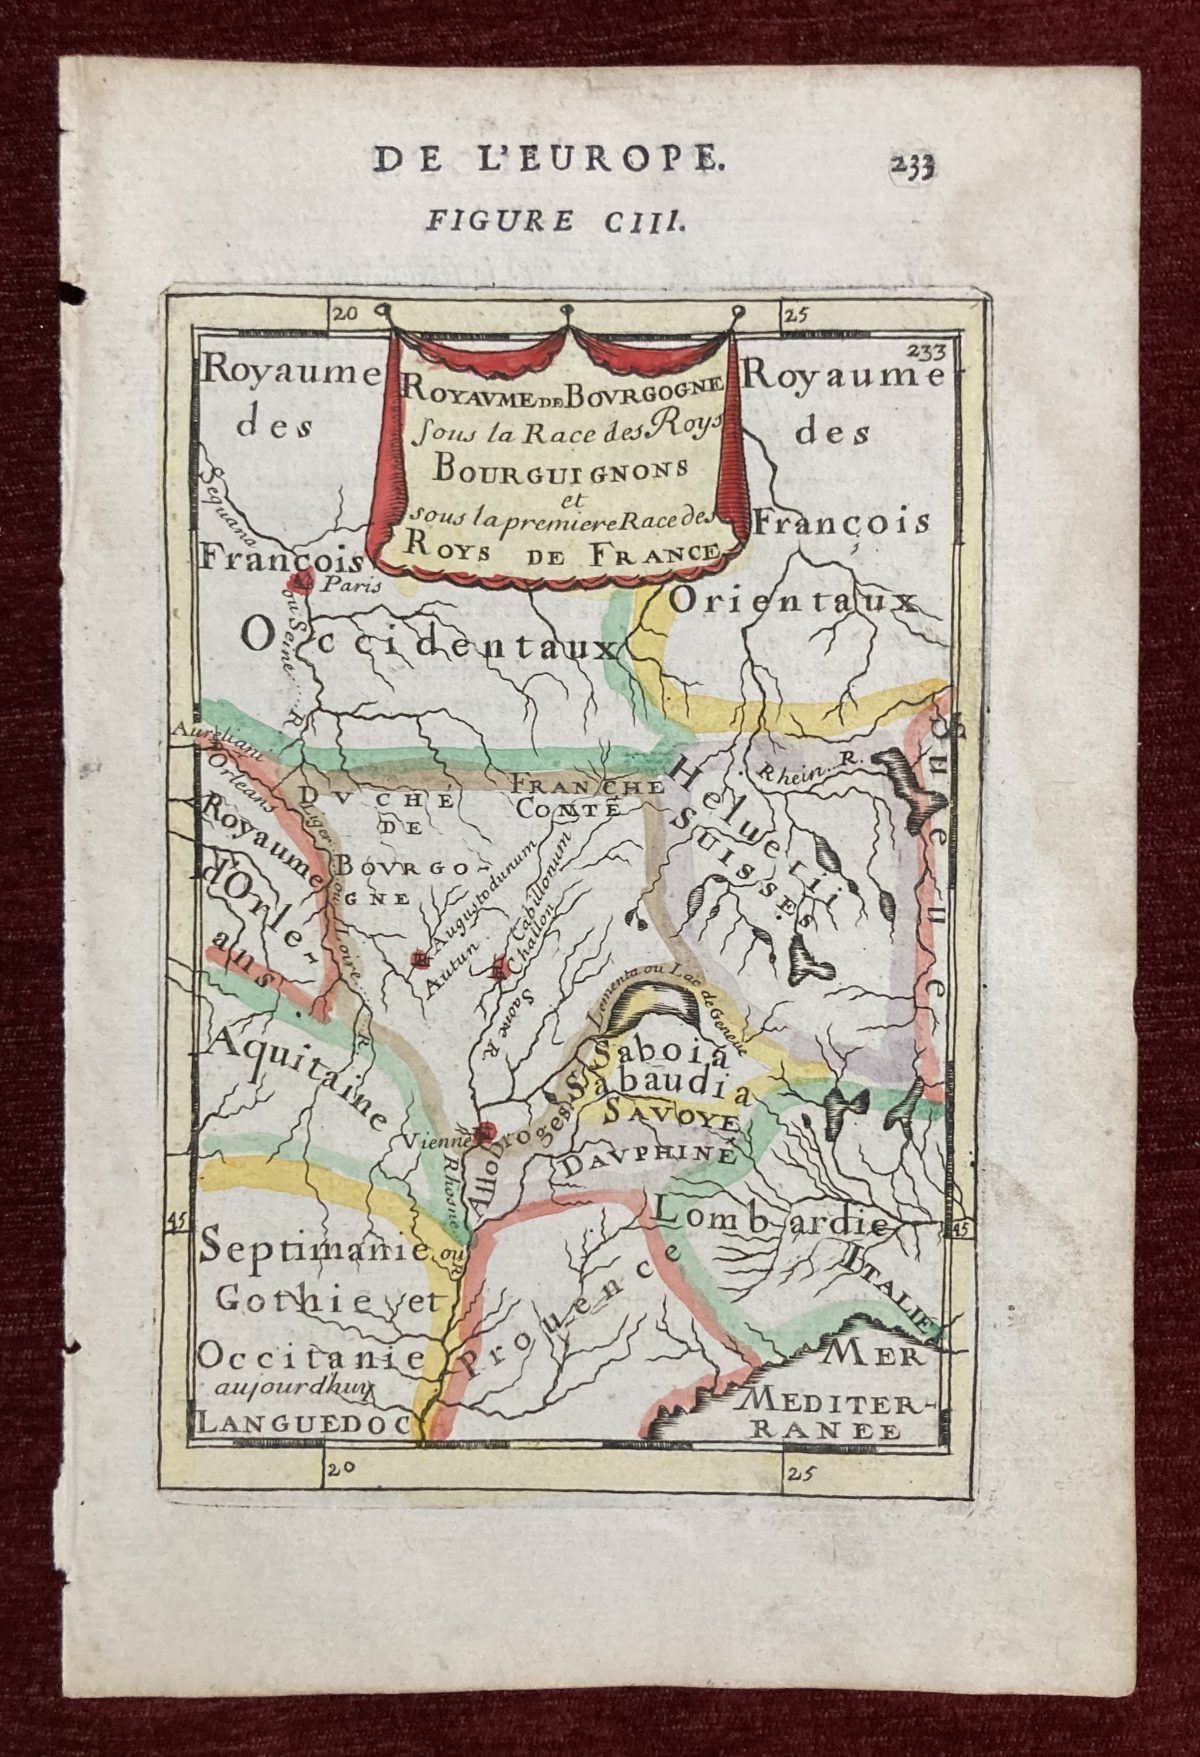 DE L'EUROPE. 233
FIGURE CIII.
20
25
233
ROYAVME DE BOVRGOGNE
sous la Race des Roys
BOURGUIGNONS
et
sous la premiere Race des
ROYS DE FRANCE
Royaume
des
François
Occidentaux
Royaume
des
François
Orientaux
Sequana
ou Seine R
Paris
Aureliani
Orleans
Royaume
d'Orle-
ans
Liger ou Loire R
DVCHÉ
DE
BOVRGO-
GNE
FRANCHE
COMTÉ
Augustodunum
Autun
Cabillonum
Challon
Saone R
Heluetii
SUISSES
Rhein R.
Sueue
Lementa ou Lac de Geneue
Saboia
Sabaudia
SAVOYE
Allobroges
DAVPHINÉ
Vienne
Rhosne ou R
Aquitaine
45
45
Septimanie
Gothie et
Occitanie
aujourdhuy
LANGUEDOC
Prouence
Lombardie
ITALIE
MER
MEDITER-
RANEE
20
25